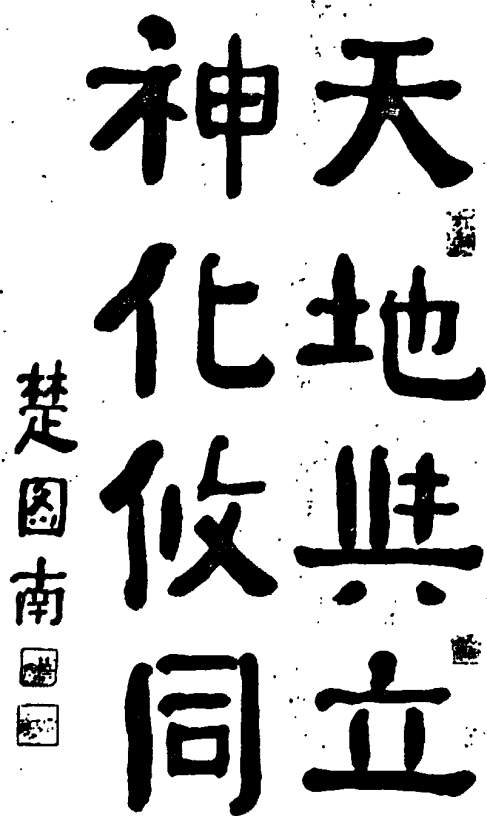 天地與立
神化攸同
楚图南